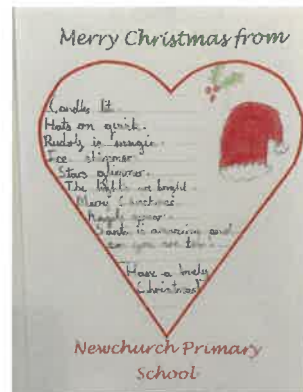 Merry Christmas from
Candles lit.
Hats on quick.
Rudolf is magic.
Ice shimmer.
Stars glimmer.
The lights are bright.
Merry Christmas
appear.
Santa is amazing and
you are too
Have a lovely
Christmas!
Newchurch Primary
School